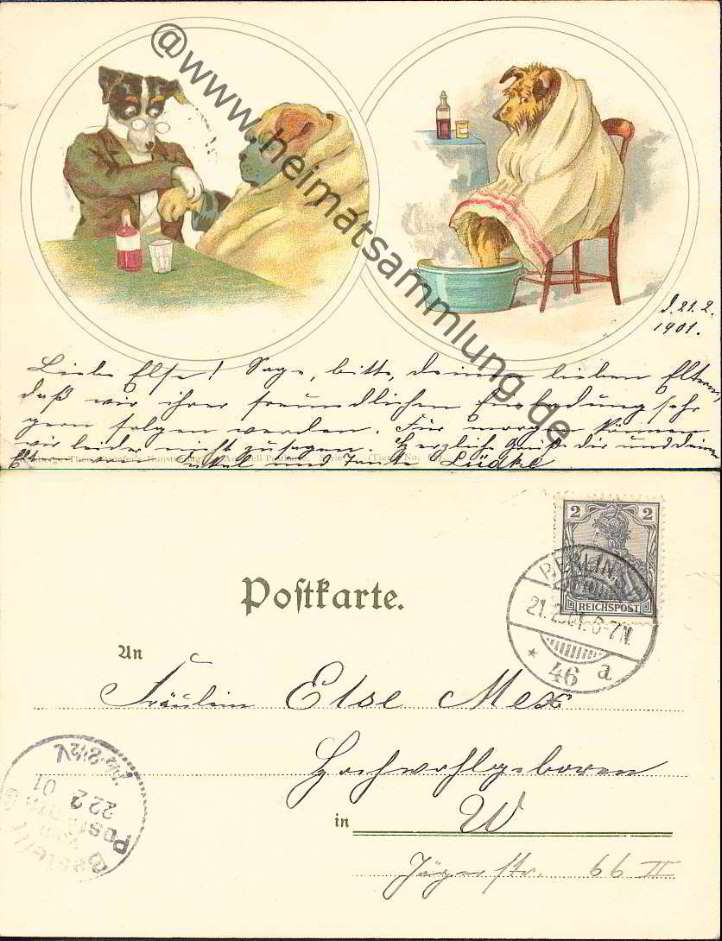 @www.heimatsammlung.de
d. 21.2.
1901.
Liebe Else! Sage, bitte, deinen lieben Eltern,
daß wir ihrer freundlichen Einladung sehr
gern folgen werden. Für morgen können
wir leider nicht zusagen. Herzlich grüßt dich und deine
Onkel und Tante Lüdke
2 2
REICHSPOST
BERLIN
21.2.01. 6-7N.
* 46 a
Postkarte.
An
Fräulein Else Mex
Hochwohlgeboren
in W
Jäger str. 66 II
Bestellt
Postamt
22 2 01